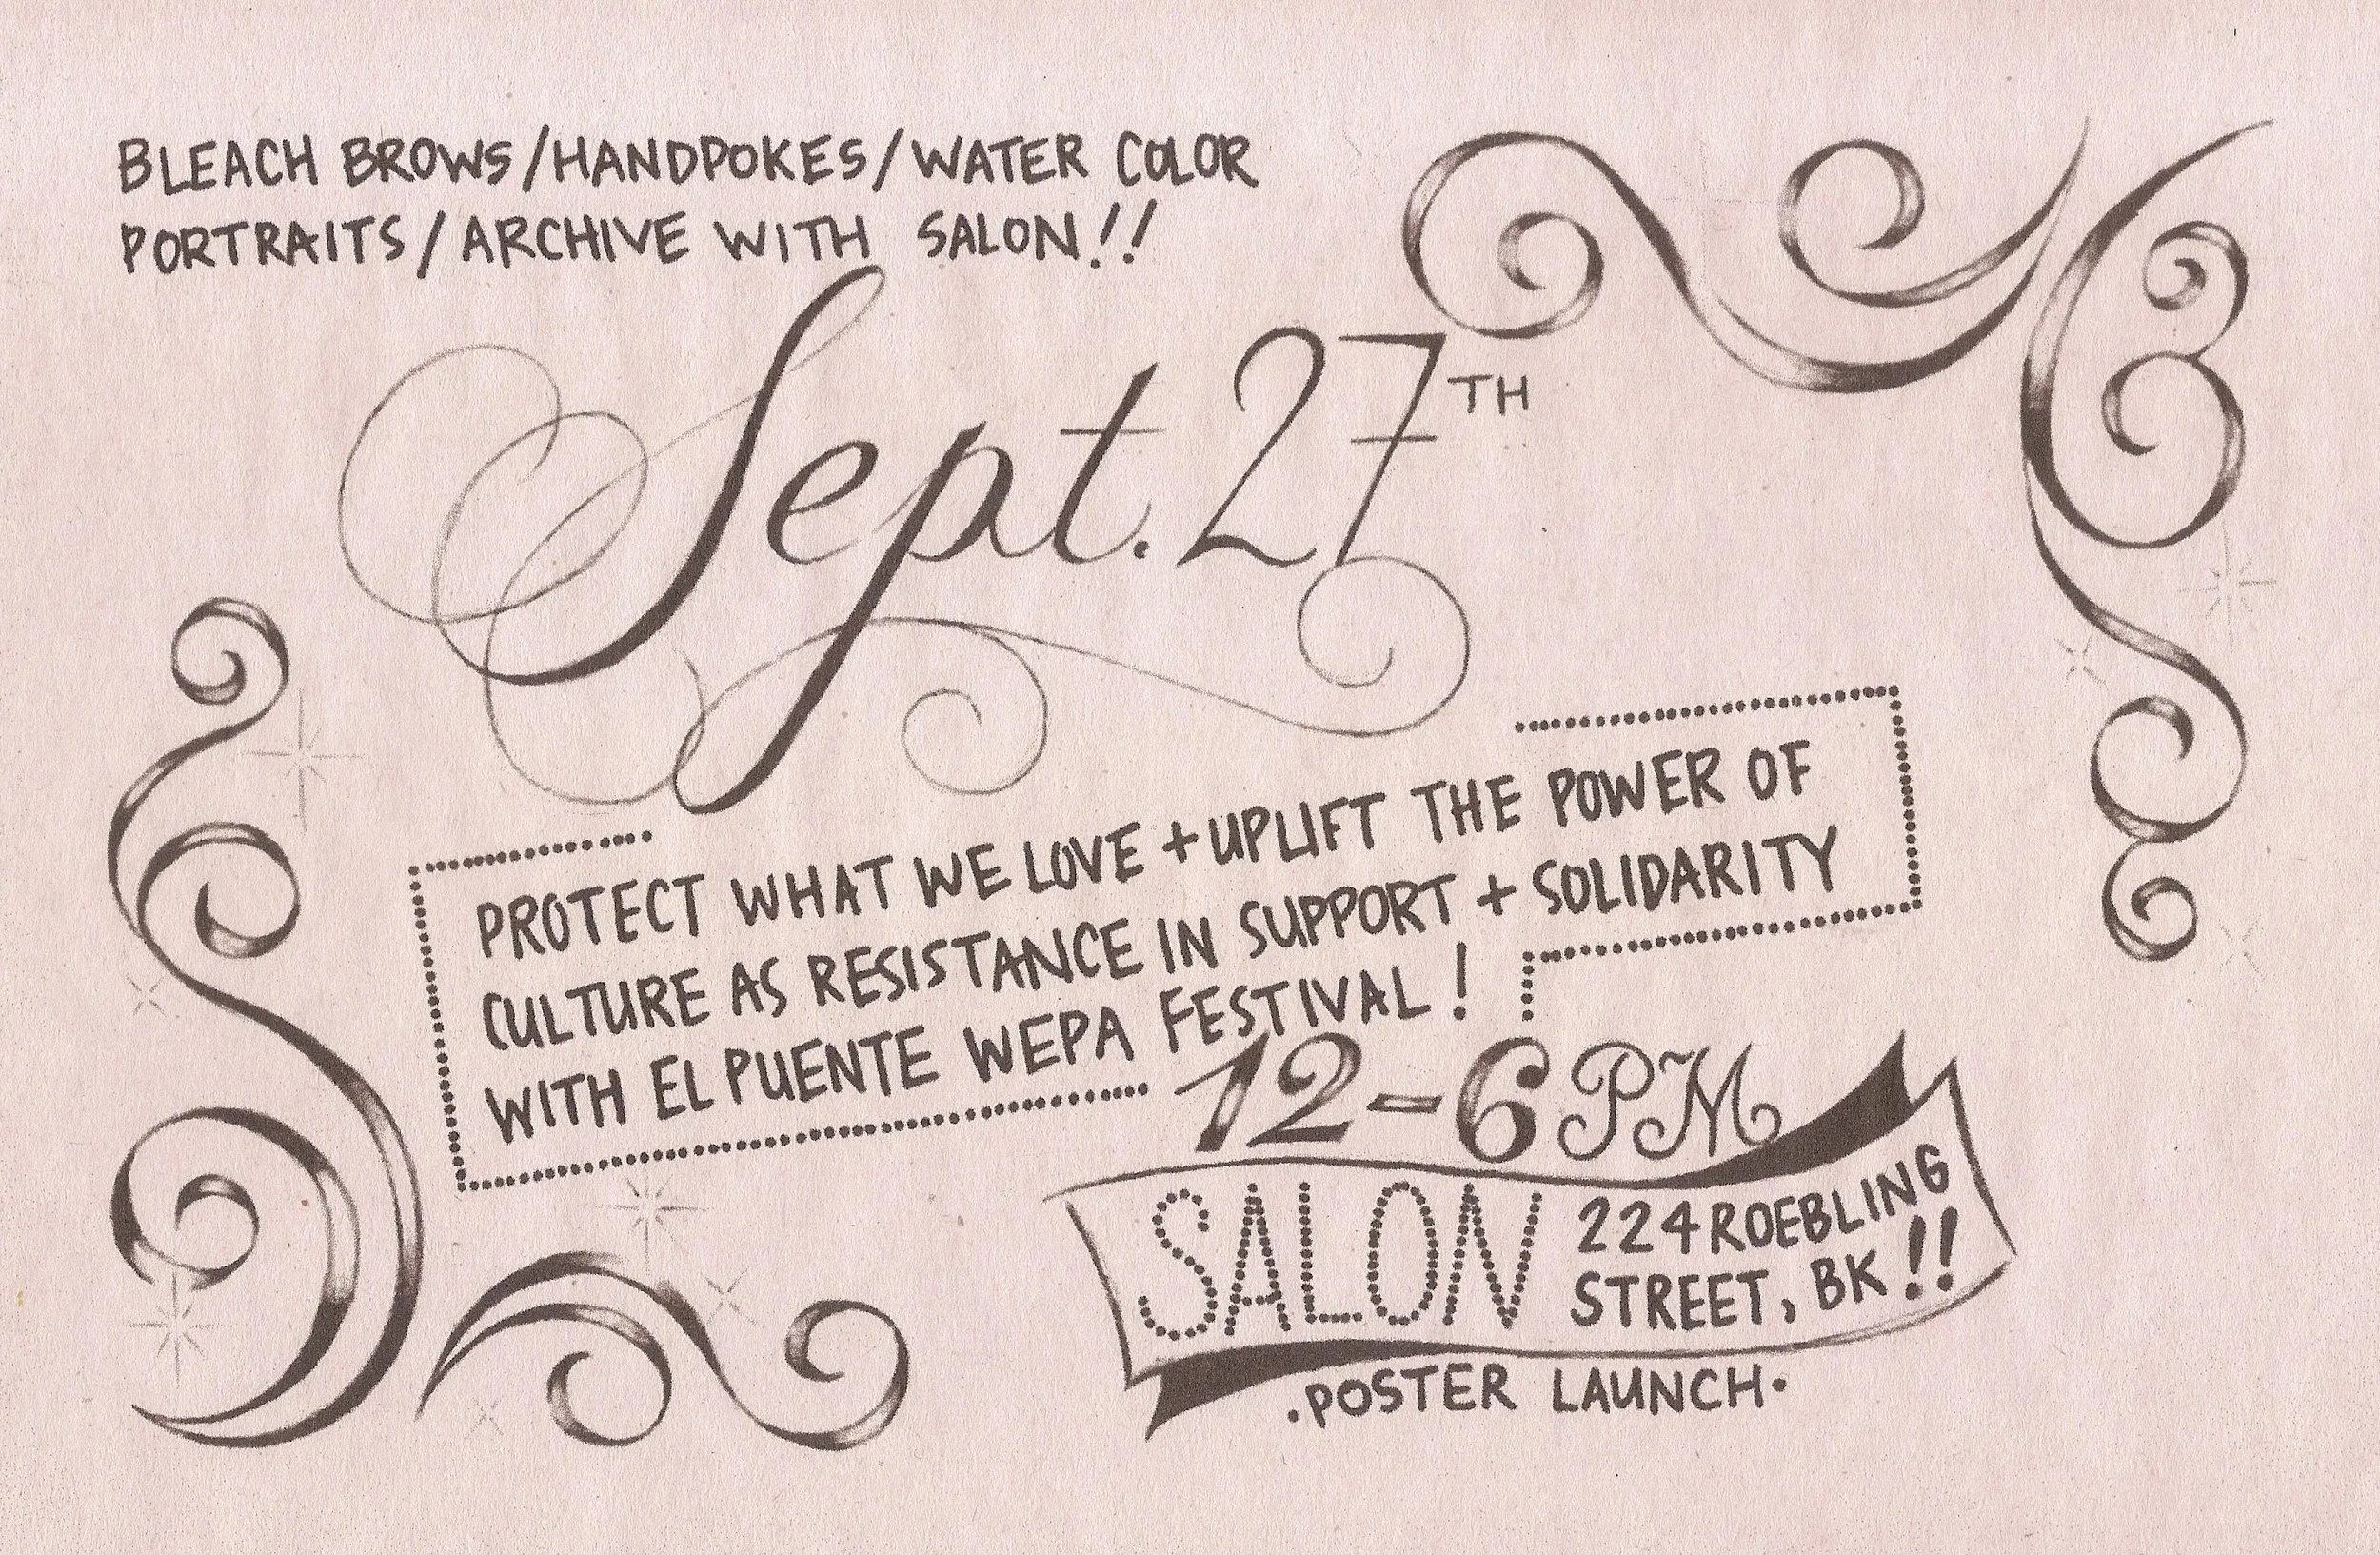 BLEACH BROWS/HANDPOKES/WATER COLOR
PORTRAITS/ARCHIVE WITH SALON!!
Sept. 27TH
PROTECT WHAT WE LOVE + UPLIFT THE POWER OF
CULTURE AS RESISTANCE IN SUPPORT + SOLIDARITY
WITH EL PUENTE WEPA FESTIVAL!
12-6PM
SALON
224 ROEBLING
STREET, BK!!
·POSTER LAUNCH·